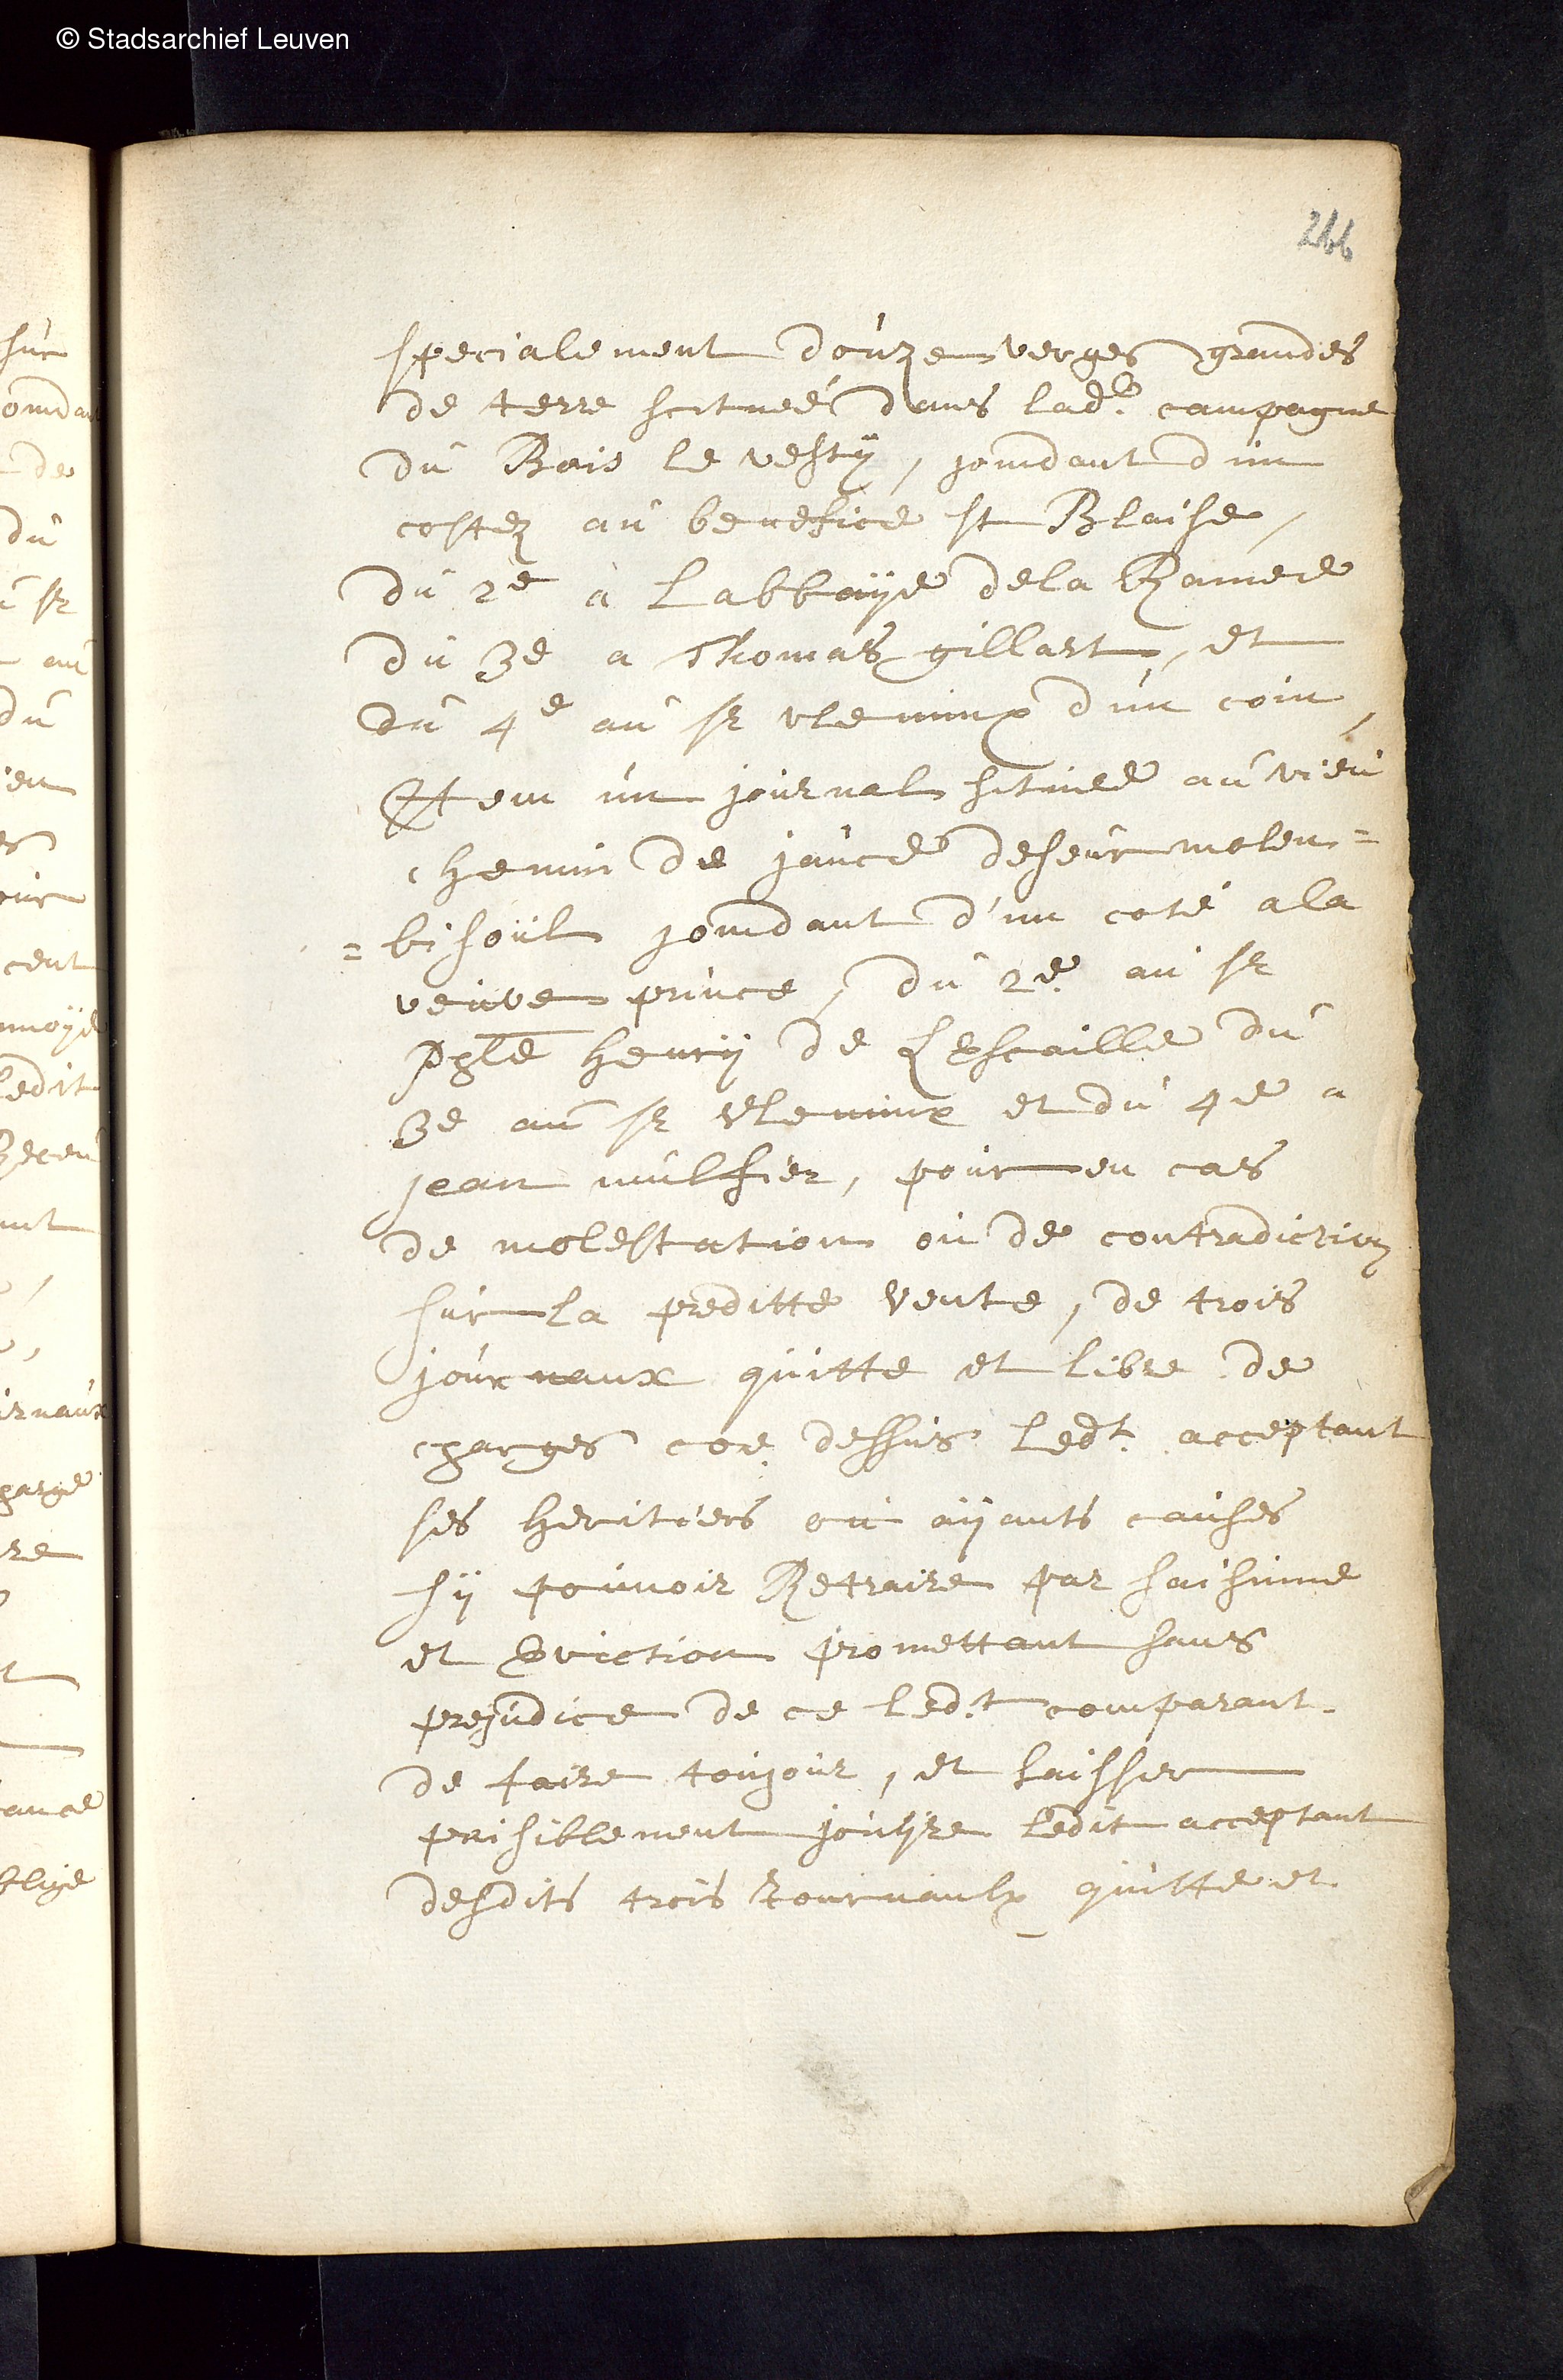 © Stadsarchief Leuven
266
specialement doúze verges grandes
de terre scituéé dans lade. campagne
dú Bois le vestÿ, joindant d'un
costez aú benefice st Blaise,
dú 2e a Labbaÿe dela Ramee
dú 3e a Thomas gillart, et
dú 4e aú sr vleminx d'ún coin,
Item ún joúrnal situee aú vieú
chemin de jaúce deseúr molem=
=bisoúl joindant d'ún coté ala
veúve prince, dú 2e. aú sr
Henrÿ de Lescaille dú
3e aú sr vleminx et dú 4e a
jean múlkier, poúr en cas
de molestation oú de contradiction
súr la preditte vente, de trois
joúrnaux quitte et libre de
charges coe. dessús ledt. acceptant
ses heritiers oú aÿants caúses
sÿ poúvoir Retraire par saisinne
et Eviction promettant sans
prejúdice de ce led.t comparant
de faire toujoúr, et laisser
paisiblement joúÿre ledit acceptant
desdits trois Journaulx quitte et